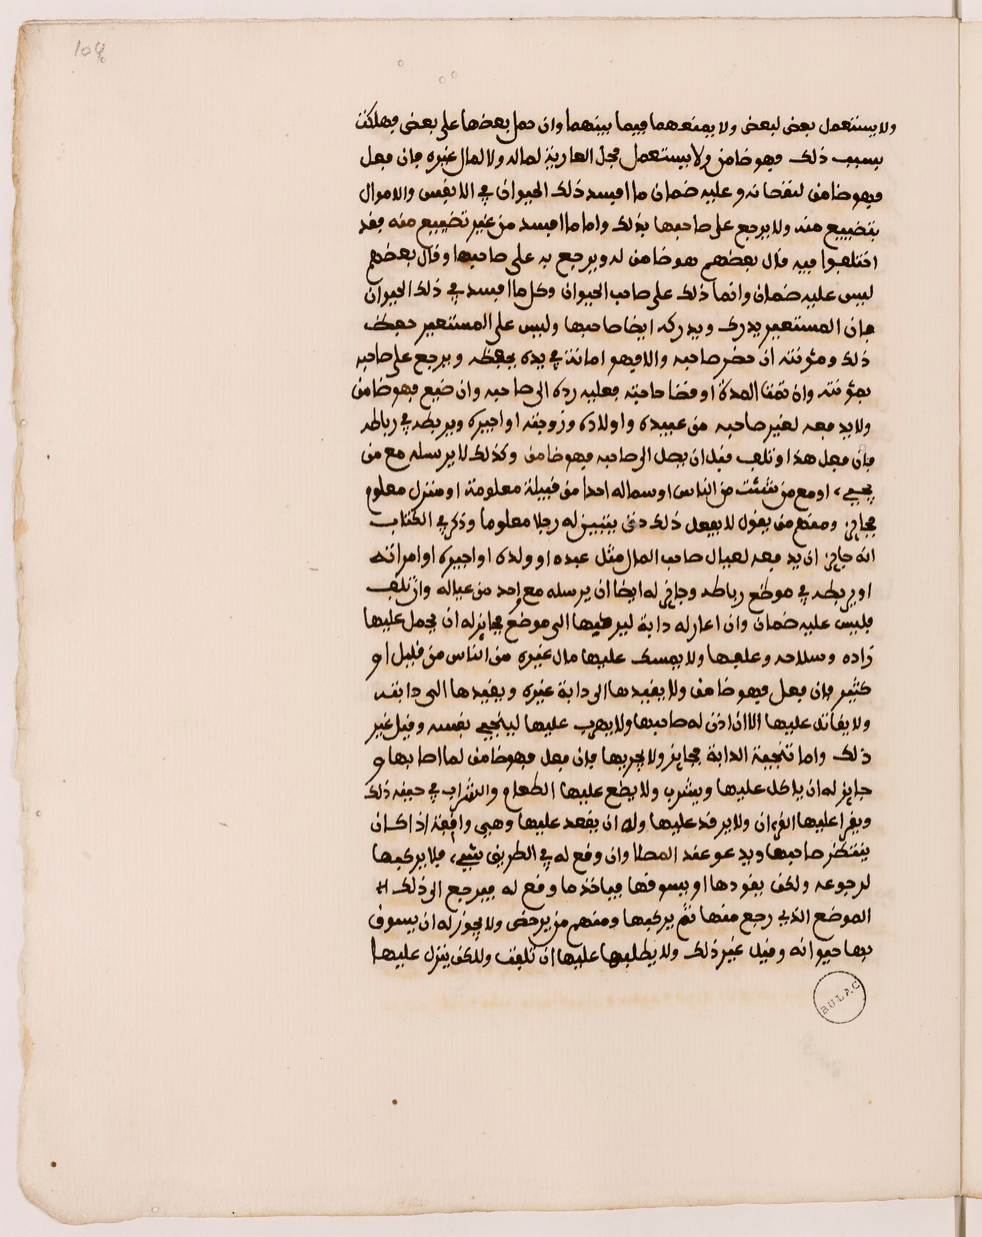 104
ولا يستعمل بعض لبعض ولا يمنعهما فيما بينهما وان حمل بعضها على بعض فهلكت
بسبب ذلك فهو ضامن ولا يستعمل فحل العارية لماله ولا لمال غيره فان فعل
فهو ضامن لنقصانه وعليه ضمان ما افسد ذلك الحيوان في الانفس والاموال
بتضييع منه ولا يرجع على صاحبها بذلك واما ما افسد من غير تضييع منه فقد
اختلفوا فيه قال بعضهم هو ضامن له ويرجع به على صاحبها وقال بعضهم
ليس عليه ضمان وانما ذلك على صاحب الحيوان وكل ما افسد في ذلك الحيوان
فان المستعير يدرك ويدركه ايضا صاحبها وليس على المستعير حفظ
ذلك ومؤنته ان حضر صاحبه والا فهو امانة في يده يحفظه ويرجع على صاحبه
بمؤنته وان تمت المدة او قضا حاجته فعليه رده الى صاحبه وان ضيع فهو ضامن
ولا يدفعه لغير صاحبه من عبيده واولاده وزوجته او اجيره ويربطه في رباطه
فان فعل هذا وتلف قبل ان يصل الى صاحبه فهو ضامن وكذلك لا يرسله مع من
يجيء او مع من شئت من الناس او سما له احدا من قبيلة معلومة او منزل معلوم
فجائز ومنهم من يقول لا يفعل ذلك حتى يتبين له رجلا معلوما وذكر في الكتاب
انه جائز ان يدفعه لعيال صاحب المال مثل عبده او ولده او اجيره او امراته
او يربطه في موضع رباطه وجائز له ايضا ان يرسله مع احد من عياله وان تلف
فليس عليه ضمان وان اعار له دابة ليركبها الى موضع فجائز له ان يحمل عليها
زاده وسلاحه وعلفها ولا يمسك عليها مال غيره من الناس من قليل او
كثير فان فعل فهو ضامن ولا يقيدها الى دابة غيره ويقيدها الى دابته
ولا يقاتل عليها الا ان اذن له صاحبها ولا يهرب عليها لينجي نفسه وقيل غير
ذلك واما تنجية الدابة فجائز ولا يجريها فان فعل فهو ضامن لما اصابها و
جائز له ان ياكل عليها ويشرب ولا يضع عليها الطعام والشراب في حينه ذلك
ويقرا عليها القرءان ولا يرقد عليها وله ان يقعد عليها وهي واقفة اذا كان
ينتظر صاحبها ويدعو عقد المصلا وان وقع له في الطريق شيء فلا يركبها
لرجوعه ولكن يقودها او يسوقها فياخذ ما وقع له فيرجع الى ذلك
الموضع الذي رجع منها ثم يركبها ومنهم من يرخص ولا يجوز له ان يسوق
بها حيوانه وقيل غير ذلك ولا يطلبها عليها ان تلفت وللكن ينزل عليها
BULAC